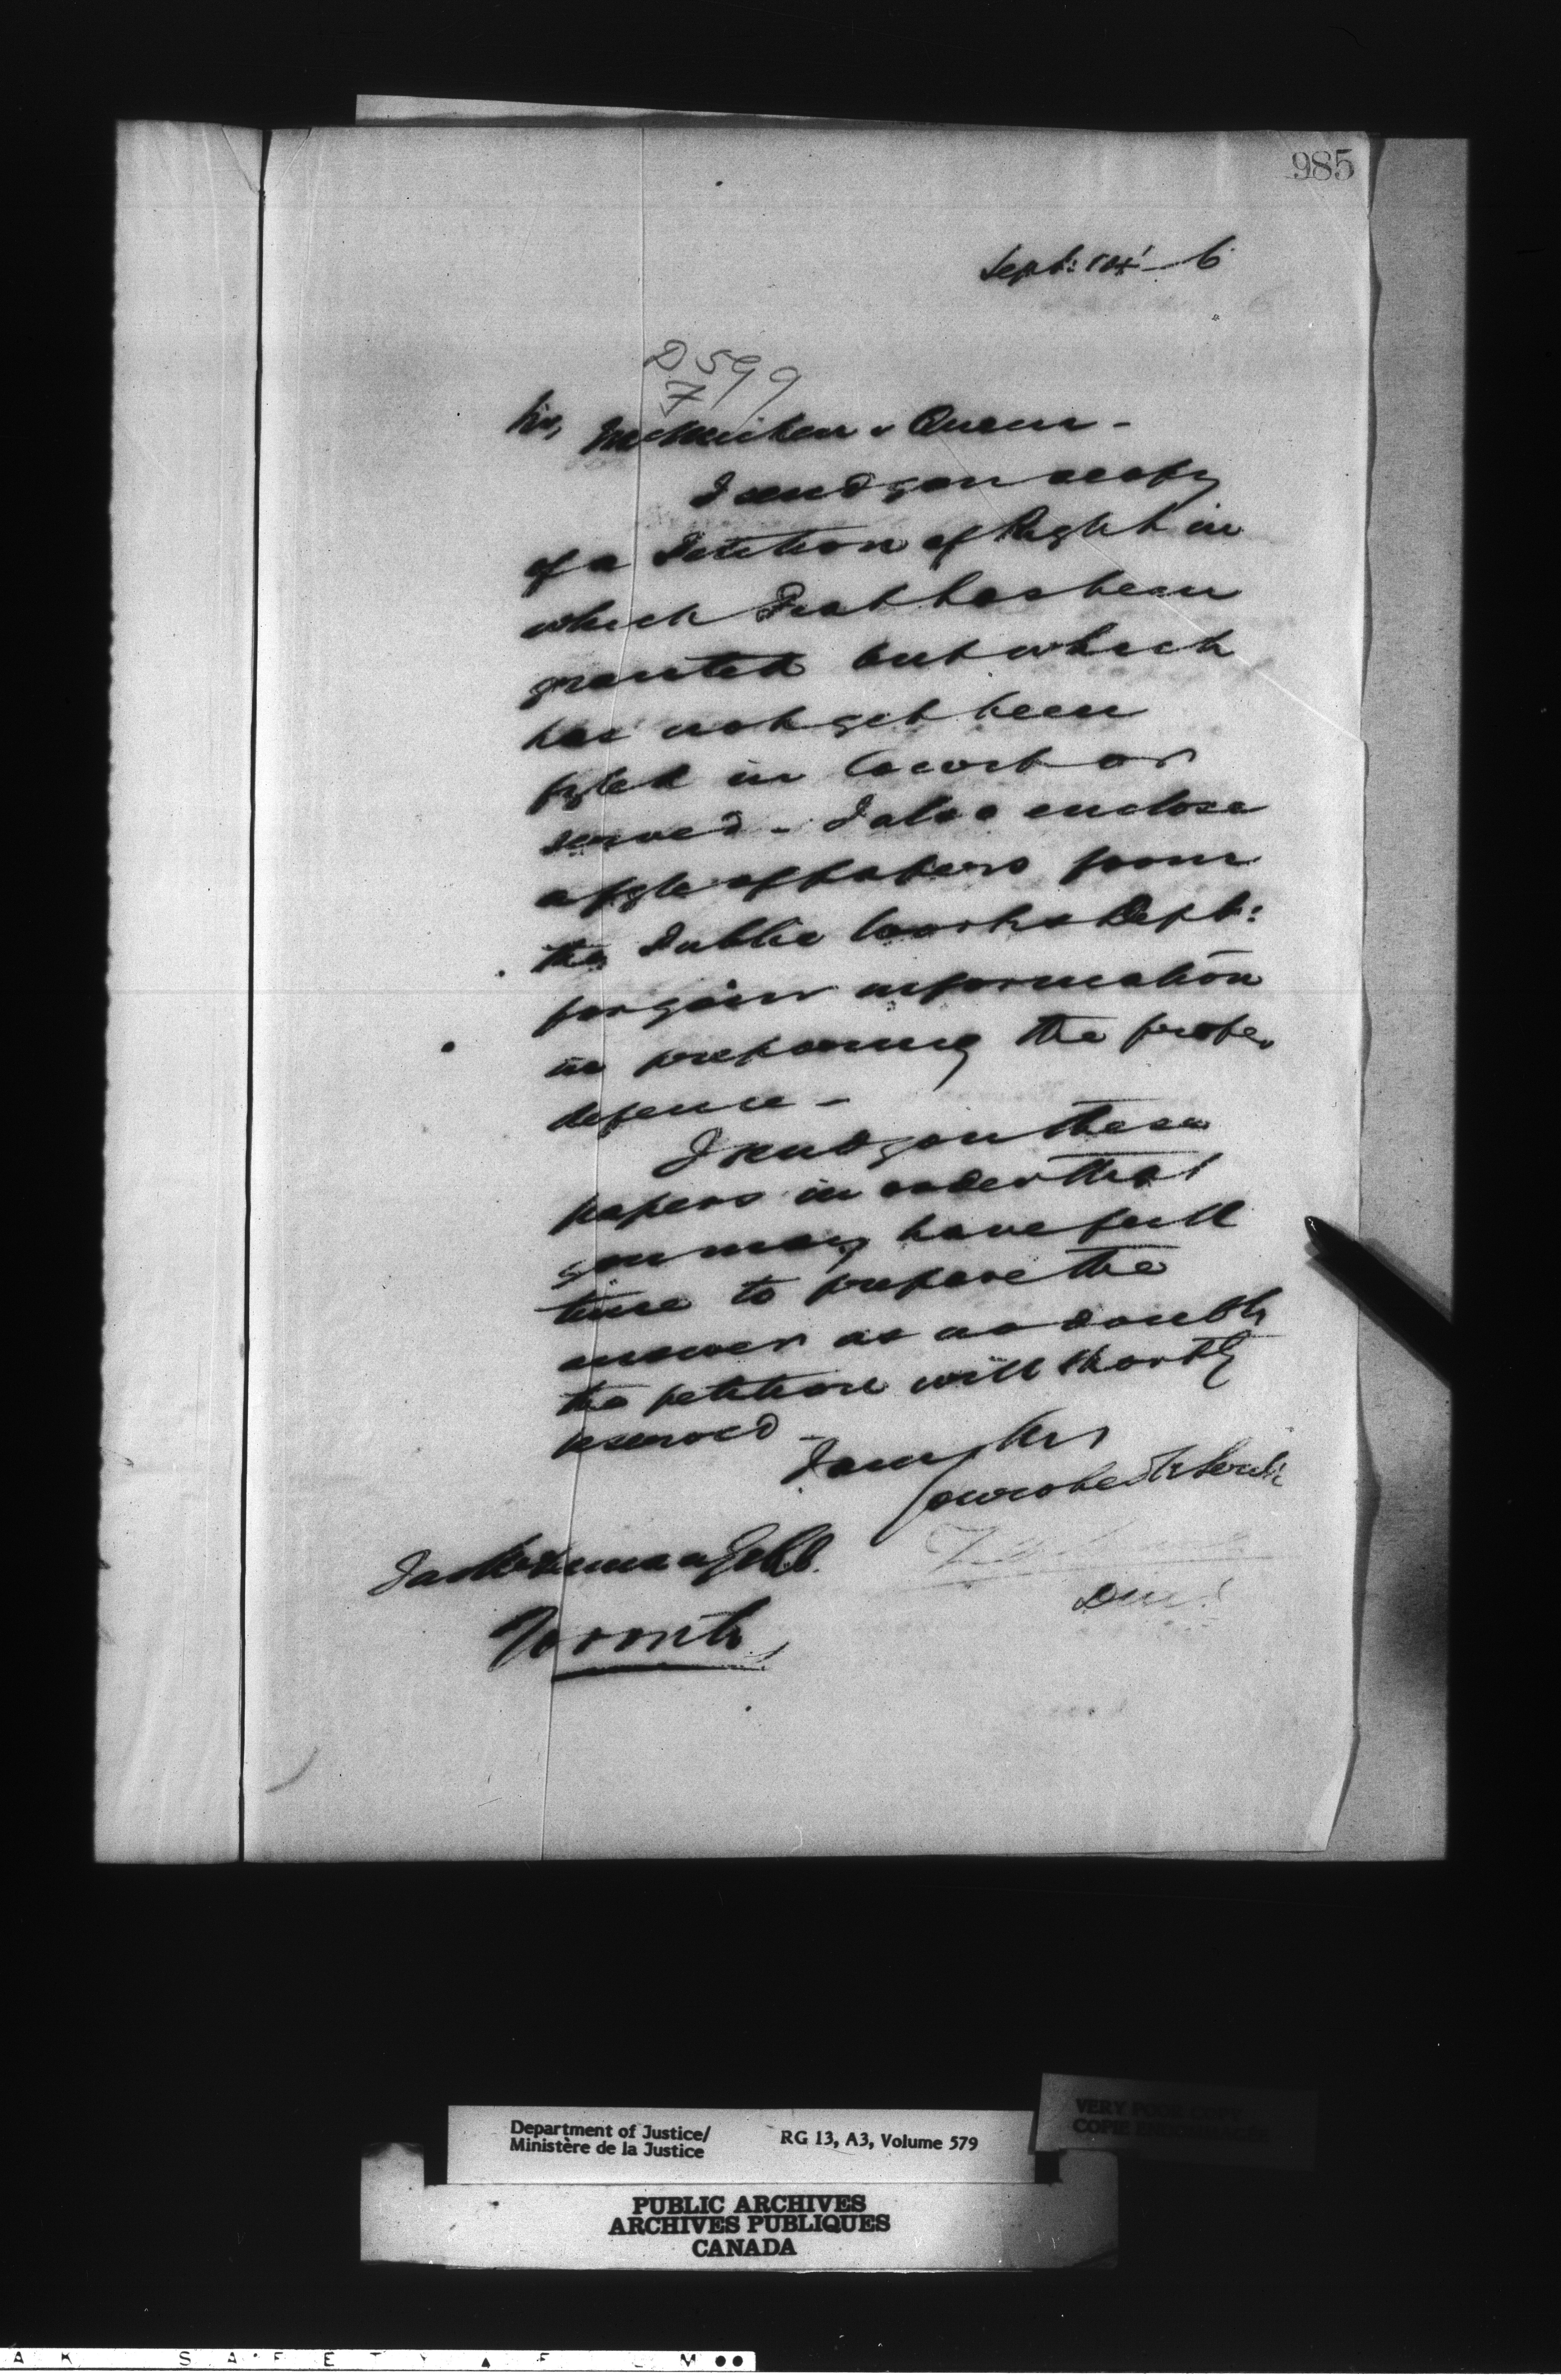 985
Sept: 14' 6
D 599
7
Sir, v Queen -
I send you a copy
of a Petition of Right in
which Fiat has been
granted but which
has not yet been
fyled in Court or
served - I also enclose
a fyle of papers from
the Public Works Dept:
for your information
in preparing the proper
defence -
I send you these
papers in order that
you may have full
time to prepare the
answer as no doubt
the petition will shortly
be served -
I am, Sir
Your obedt Servt
Jas
Toronto
Department of Justice/
Ministère de la Justice
RG 13, A3, Volume 579
VERY POOR COPY
PUBLIC ARCHIVES
ARCHIVES PUBLIQUES
CANADA
A K S A F E T Y F L M